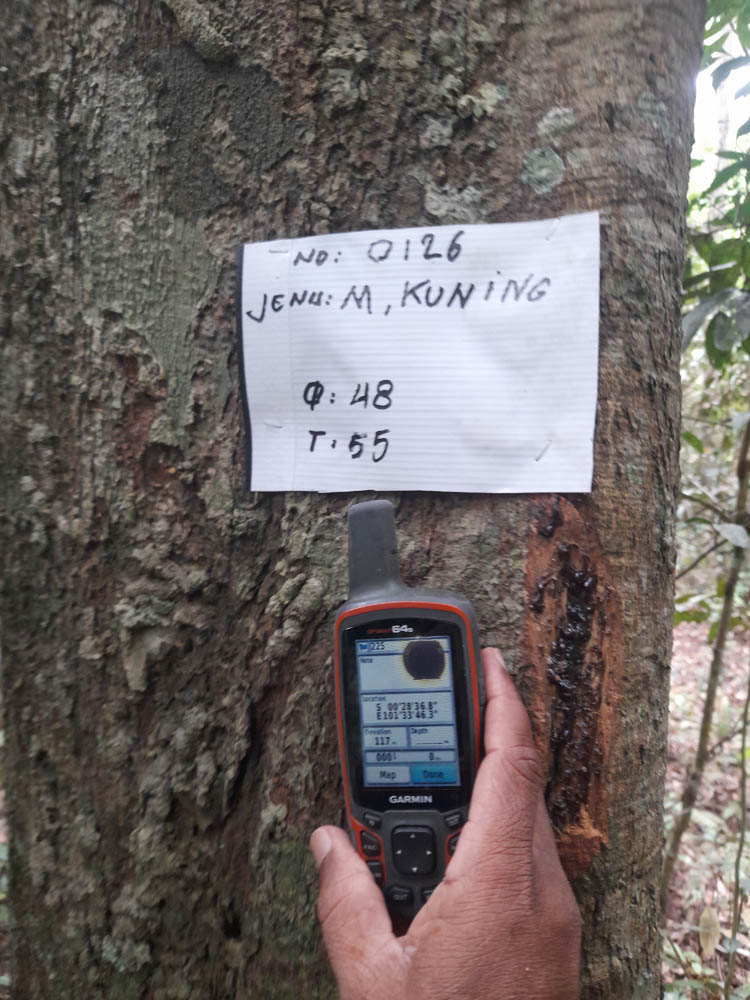 NO: 0126
JENIS: M, KUNING
Ø: 48
T: 55
GPSMAP 64s
225
Note
Location
S 00°28'36.8"
E101°33'46.3"
Elevation
Depth
117m
0m
Map
Done
GARMIN
FIND
QUIT